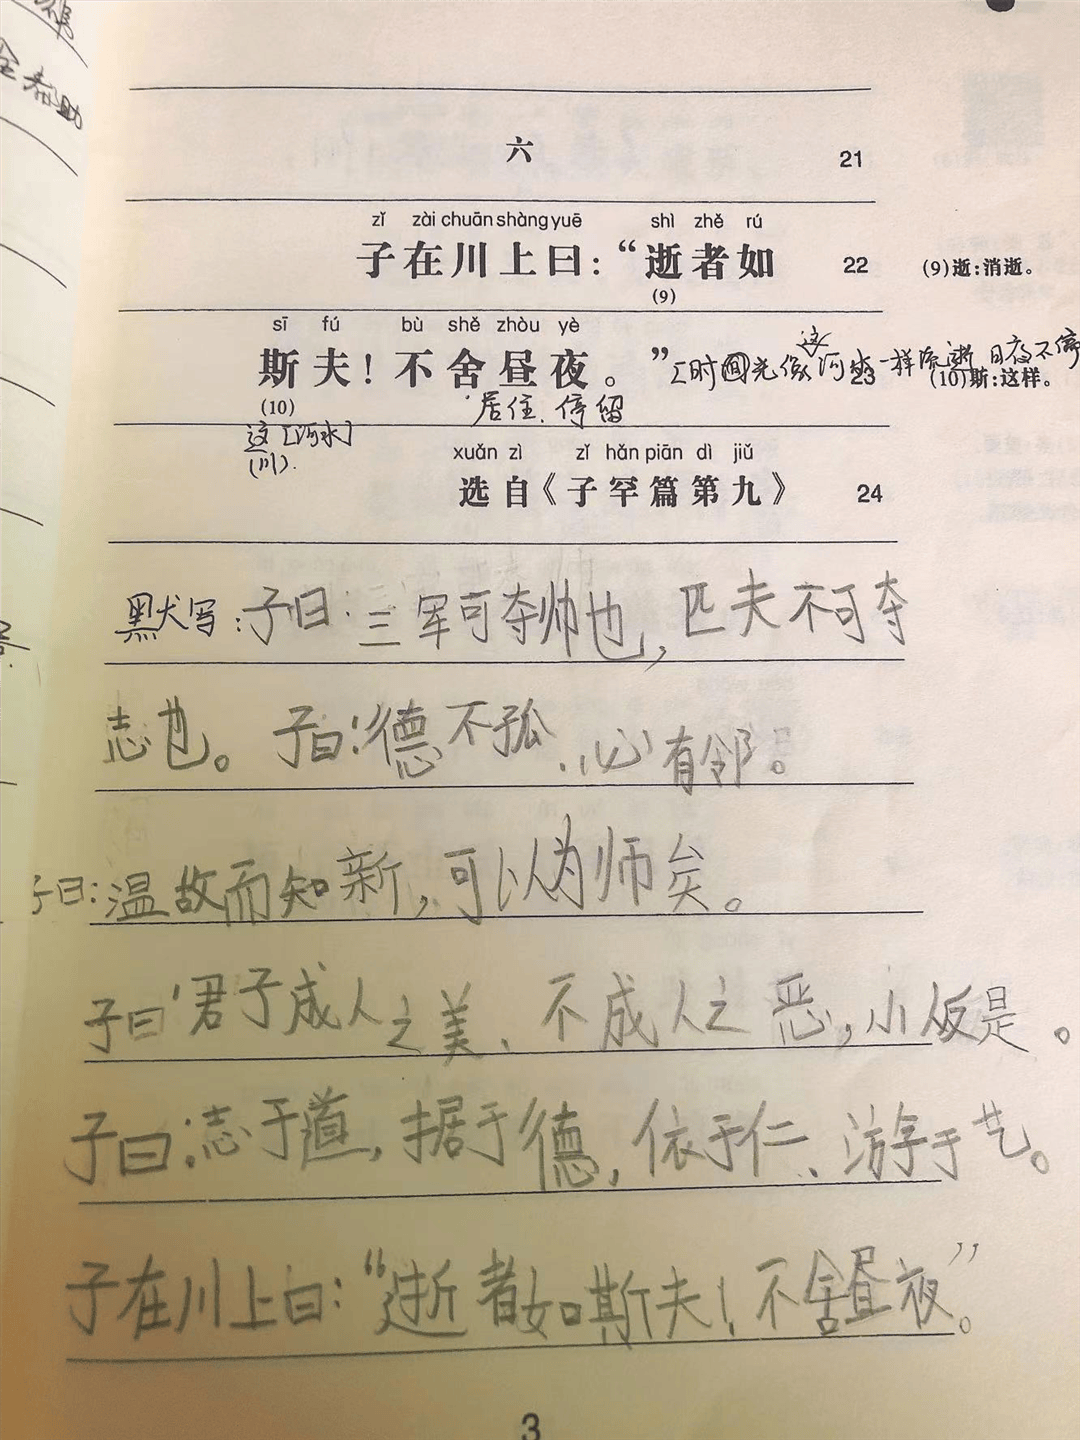 全泰勋
六 21
zǐ zài chuān shàng yuē shì zhě rú
子在川上曰：“逝者如 22 (9)逝：消逝。
(9)
sī fú bù shě zhòu yè
斯夫！不舍昼夜。” [时间光像这河水一样流逝 日夜不停 23 (10)斯：这样。
(10) 居住、停留
这[河水]
(川).
xuǎn zì zǐ hǎn piān dì jiǔ
选自《子罕篇第九》 24
默写：子曰：三军可夺帅也，匹夫不可夺
志也。子曰：德不孤、必有邻。
子曰：温故而知新，可以为师矣。
子曰'君子成人之美、不成人之恶，小反是。
子曰：志于道，据于德，依于仁、游于艺。
子在川上曰：“逝者如斯夫！不舍昼夜”。
3